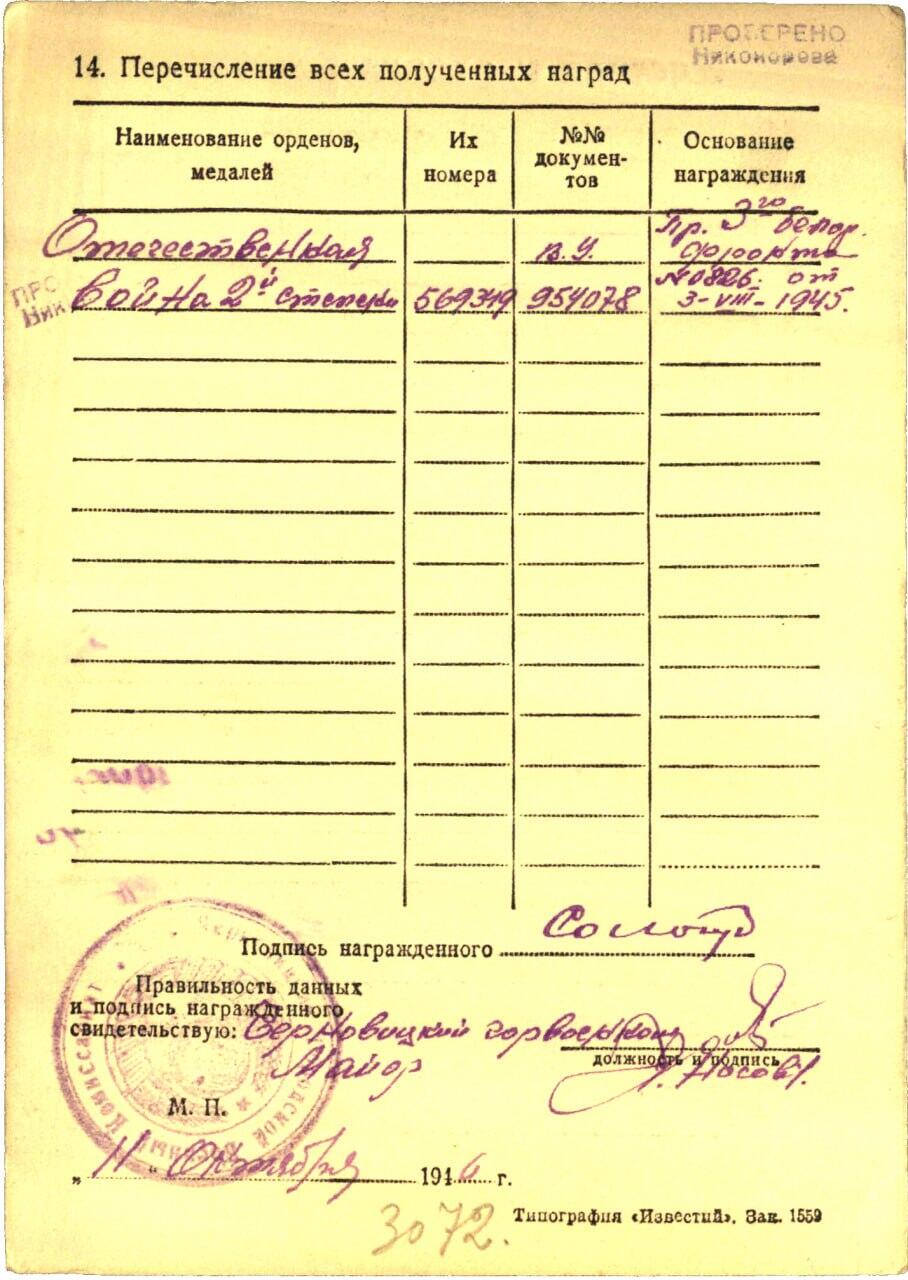 ПРОВЕРЕНО
Никонорова
14. Перечисление всех полученных наград
Наименование орденов, медалей
Их номера
№№ докумен-тов
Основание награждения
Отечественная
в.у.
Пр. 3го белор. фронта
война 2й степени
569319
954078
№0826 от
3-VIII-1945.
ПРО
Ник
Подпись награжденного
Правильность данных
и подпись награжденного
свидетельствую: Черновицкий горвоенком
должность и подпись
Майор
М. П.
„11“ Октября 1946 г.
3072.
Типография «Известий». Зак. 1559